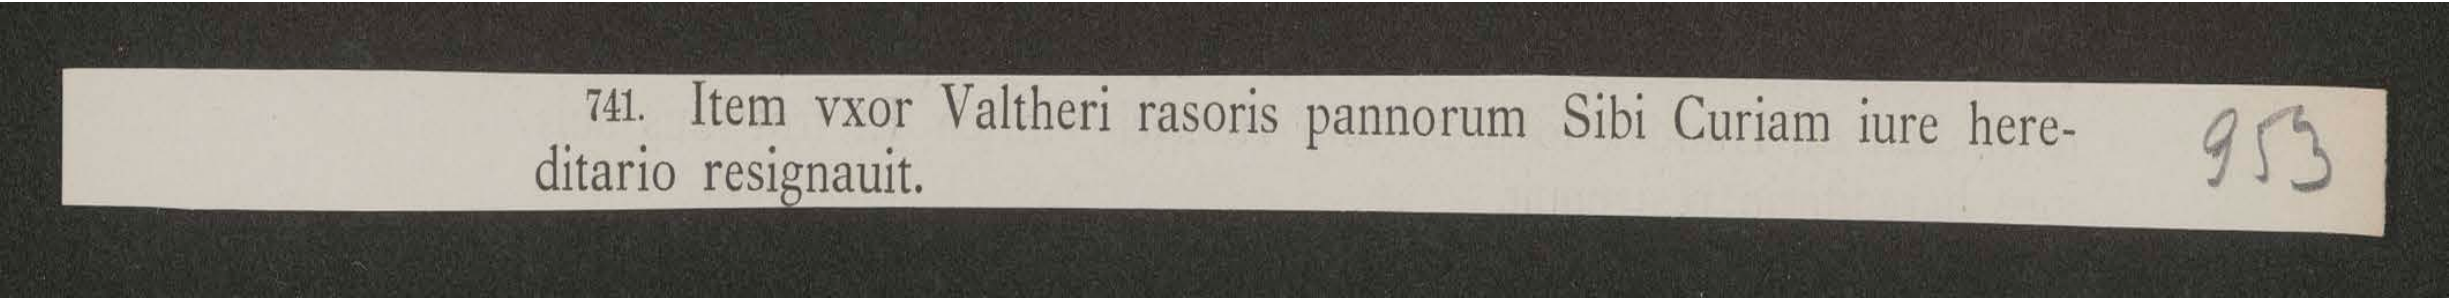 741. Item vxor Valtheri rasoris pannorum Sibi Curiam iure here-
ditario resignauit.
953